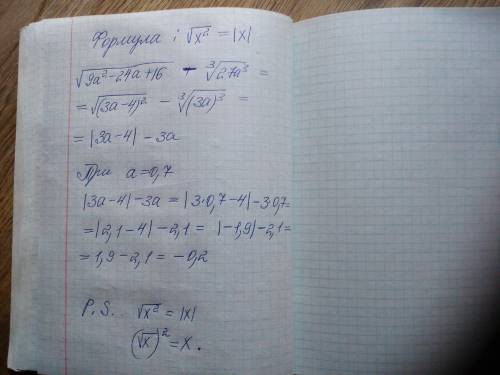 Формула: √x² = |x|
√9a²-24a+16 - ∛27a³ =
= √(3a-4)² - ∛(3a)³ =
= |3a-4| - 3a
При a=0,7
|3a-4|-3a = |3·0,7-4|-3·0,7=
=|2,1-4|-2,1= |-1,9|-2,1=
= 1,9-2,1= -0,2
P.S. √x² = |x|
(√x)² = x.